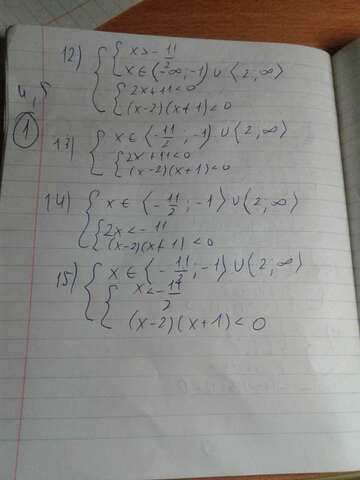 12) { { x > - 11/2
x ∈ (-∞; -1) ∪ ⟨2; ∞)
{ 2x + 11 < 0
(x-2)(x+1) < 0
13) { x ∈ ⟨-11/2; -1) ∪ ⟨2; ∞)
{ 2x + 11 < 0
(x-2)(x+1) < 0
14) { x ∈ ⟨-11/2; -1⟩ ∪ (2; ∞)
{ 2x < -11
(x-2)(x+1) < 0
15) { x ∈ ⟨-11/2; -1) ∪ (2; ∞)
{ x < - 11/2
(x-2)(x+1) < 0
1